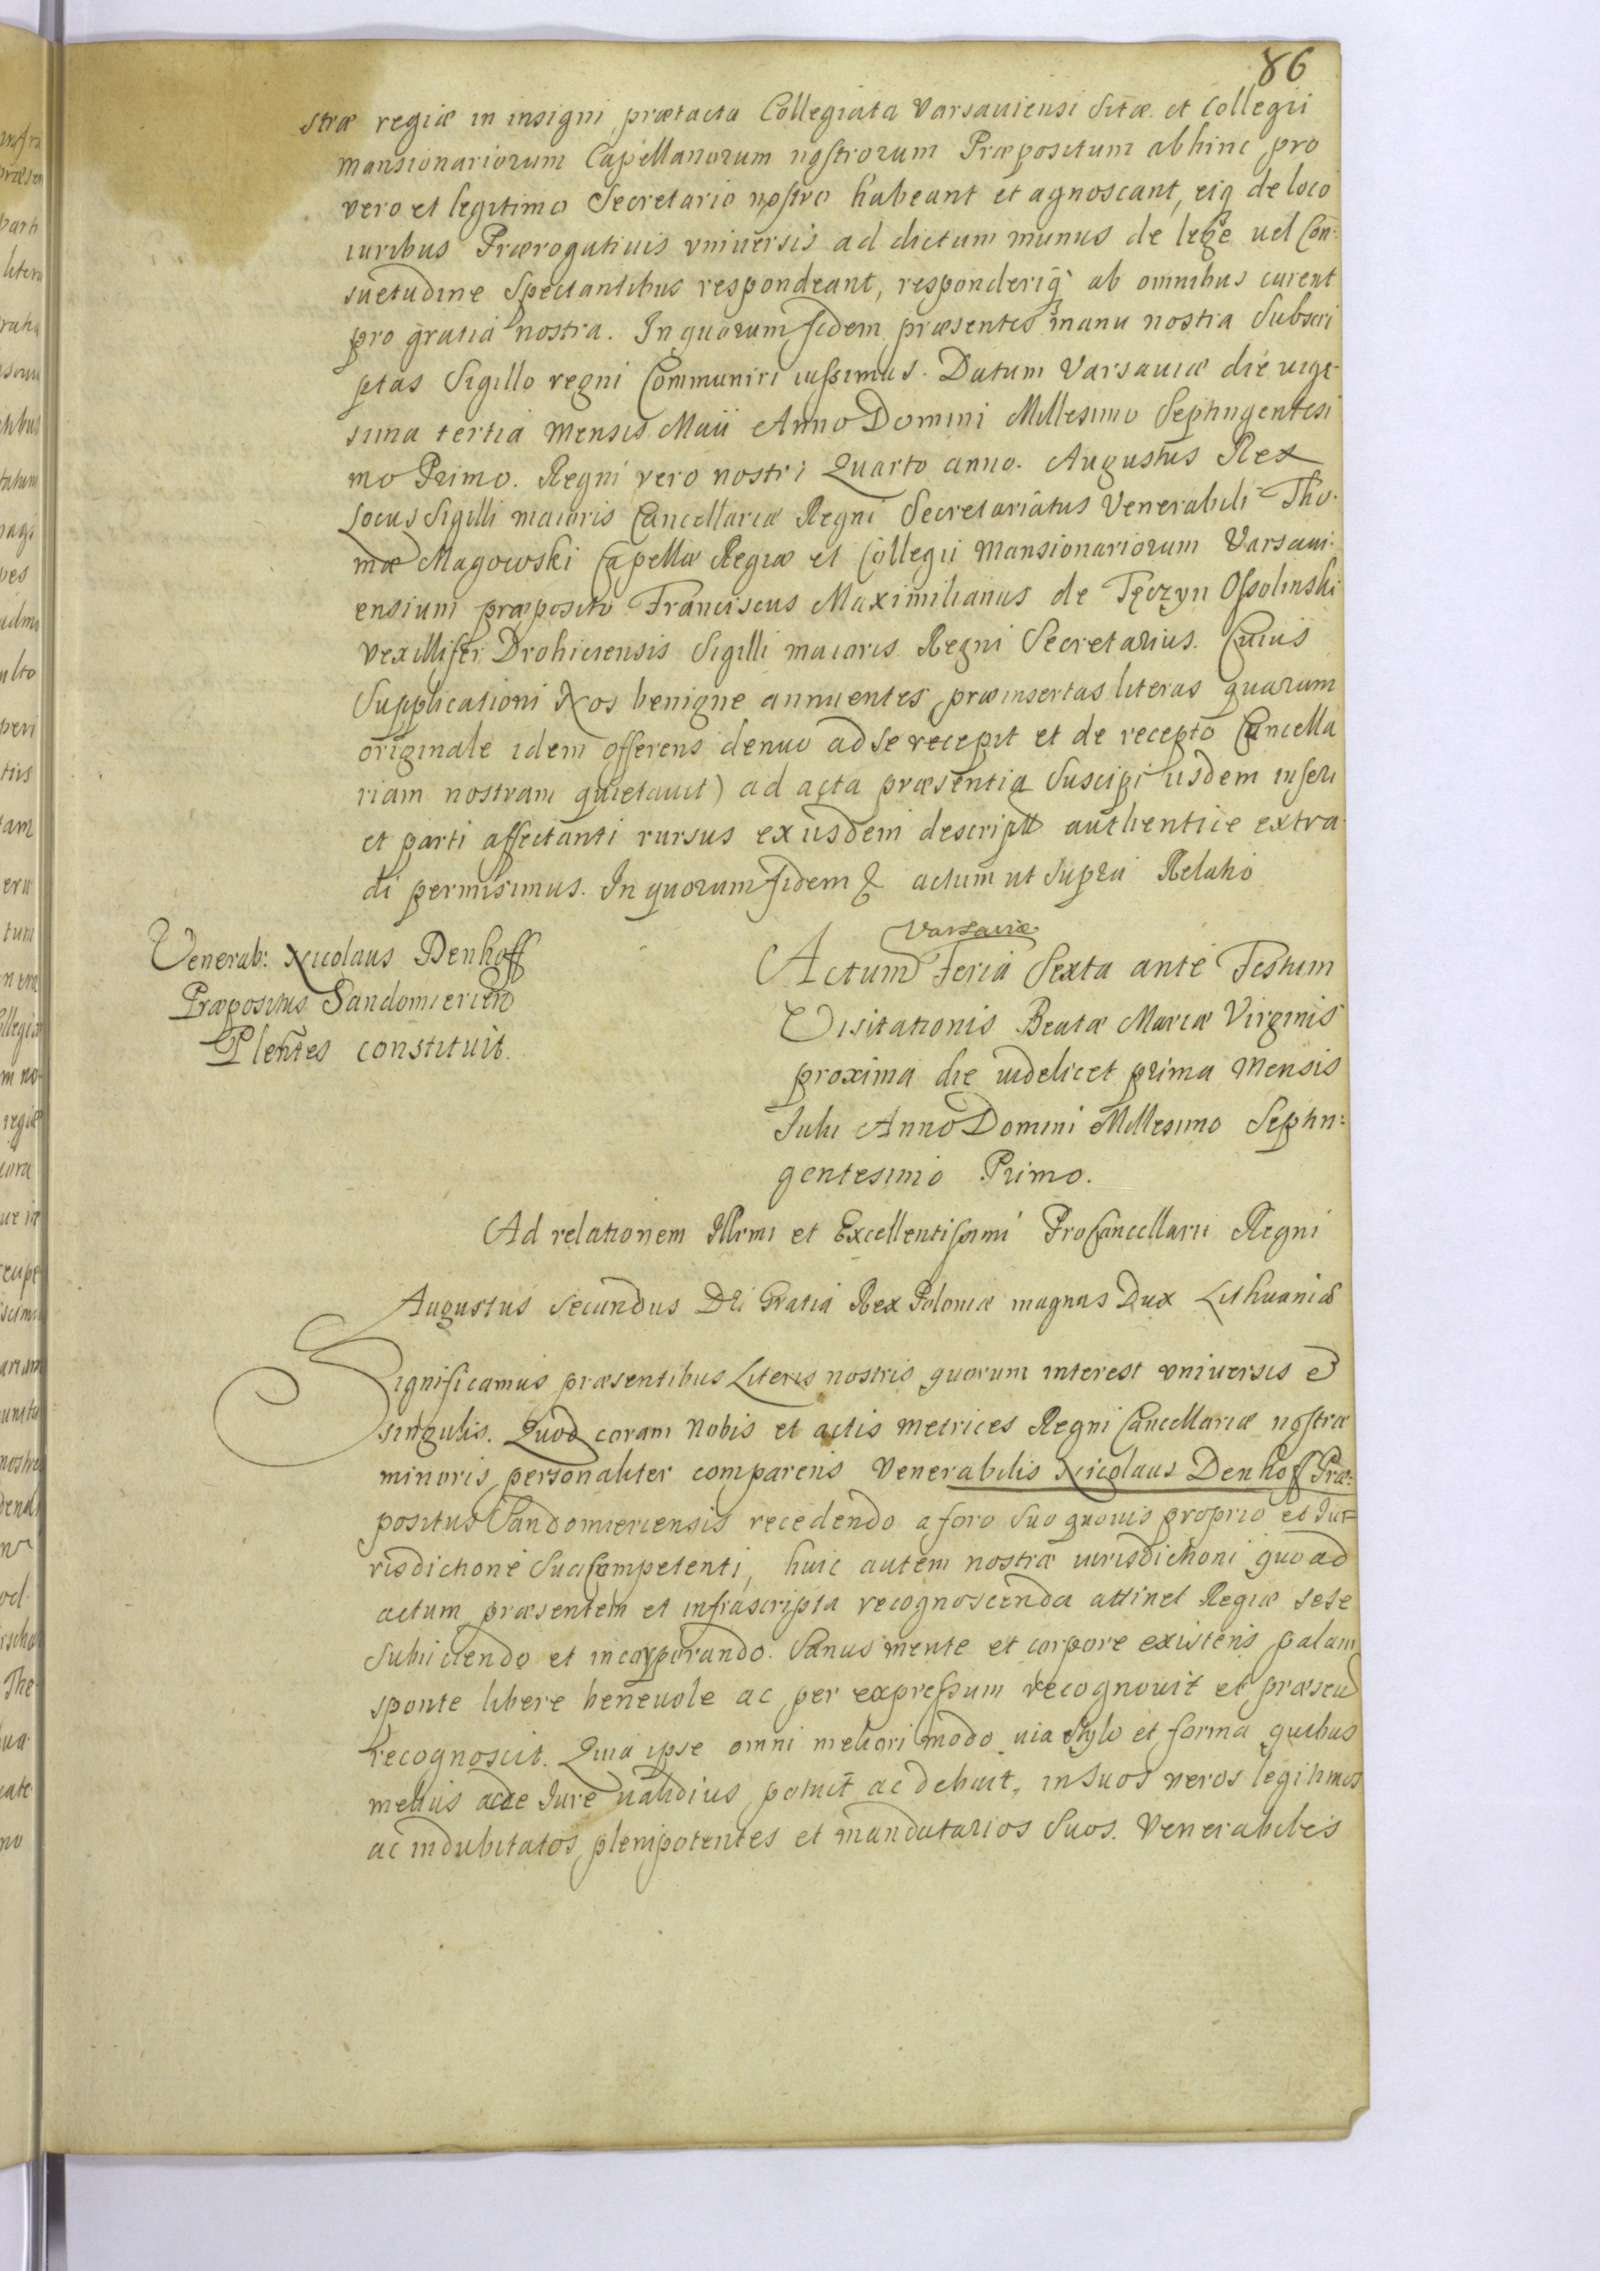 86
stræ regiæ in insigni prætacta Collegiata Varsaviensi Sitæ et Collegii
mansionariorum Capellanorum nostrorum Præpositum abhinc pro
vero et legitimo Secretario nostro habeant et agnoscant, eiq de loco
iuribus Prærogativis vniversis ad dictum munus de lege vel Con-
suetudine Spectantibus respondeant, responderiq ab omnibus curent
pro gratia nostra. In quorum fidem præsentes manu nostra Subscri
ptas Sigillo regni Communiri iussimus. Datum Varsaviæ die vige-
sima tertia mensis Maii Anno Domini Millesimo Septingentesi
mo Primo. Regni vero nostri Quarto anno. Augustus Rex
Locus Sigilli maioris Cancellariæ Regni Secretariatus Venerabili Tho-
mæ Magowski Capellæ Regiæ et Collegii Mansionariorum Varsavi-
ensium præposito Franciscus Maximilianus de Tęczyn Ossolinski
vexillifer Drohiciensis Sigilli maioris Regni Secretarius. Cuius
Supplicationi Nos benigne annuentes præinsertas literas quarum
originale idem offerens denuo ad se recepit et de recepto Cancella
riam nostram quietavit) ad acta præsentia Suscipi iisdem inseri
et parti affectanti rursus ex iisdem descript authentice extra-
di permisimus. In quorum fidem & actum ut Supra Relatio
Venerab: Nicolaus Denhoff
Præpositus Sandomirien
Plentes constituit.
Varsaviæ
Actum Feria Sexta ante Festum
Visitationis Beatæ Mariæ Virginis
proxima die videlicet prima Mensis
Julii Anno Domini Millesimo Septin-
gentesimo Primo.
Ad relationem Illrmi et Excellentissimi ProCancellarii Regni
Augustus Secundus Dei Gratia Rex Poloniæ magnus Dux Lithuaniæ
Significamus præsentibus Literis nostris quorum interest vniversis et
singulis. Quod coram Nobis et actis metrices Regni Cancellariæ nostræ
minoris personaliter comparens Venerabilis Nicolaus Denhoff Præ-
positus Sandomiriensis recedendo a foro Suo quovis proprio et Jur-
risdictione Sua Competenti, huic autem nostræ iurisdictioni quo ad
actum præsentem et infrascripta recognoscenda attinet Regiæ sese
Subiiciendo et incorporando. Sanus mente et corpore existens palam
sponte libere benevole ac per expressum recognovit et præsen
recognoscit. Quia ipse omni meliori modo via stylo et forma quibus
melius acde Jure validius potuit ac debuit, in Suos veros legitimos
ac indubitatos plenipotentes et mandatarios Suos. Venerabiles